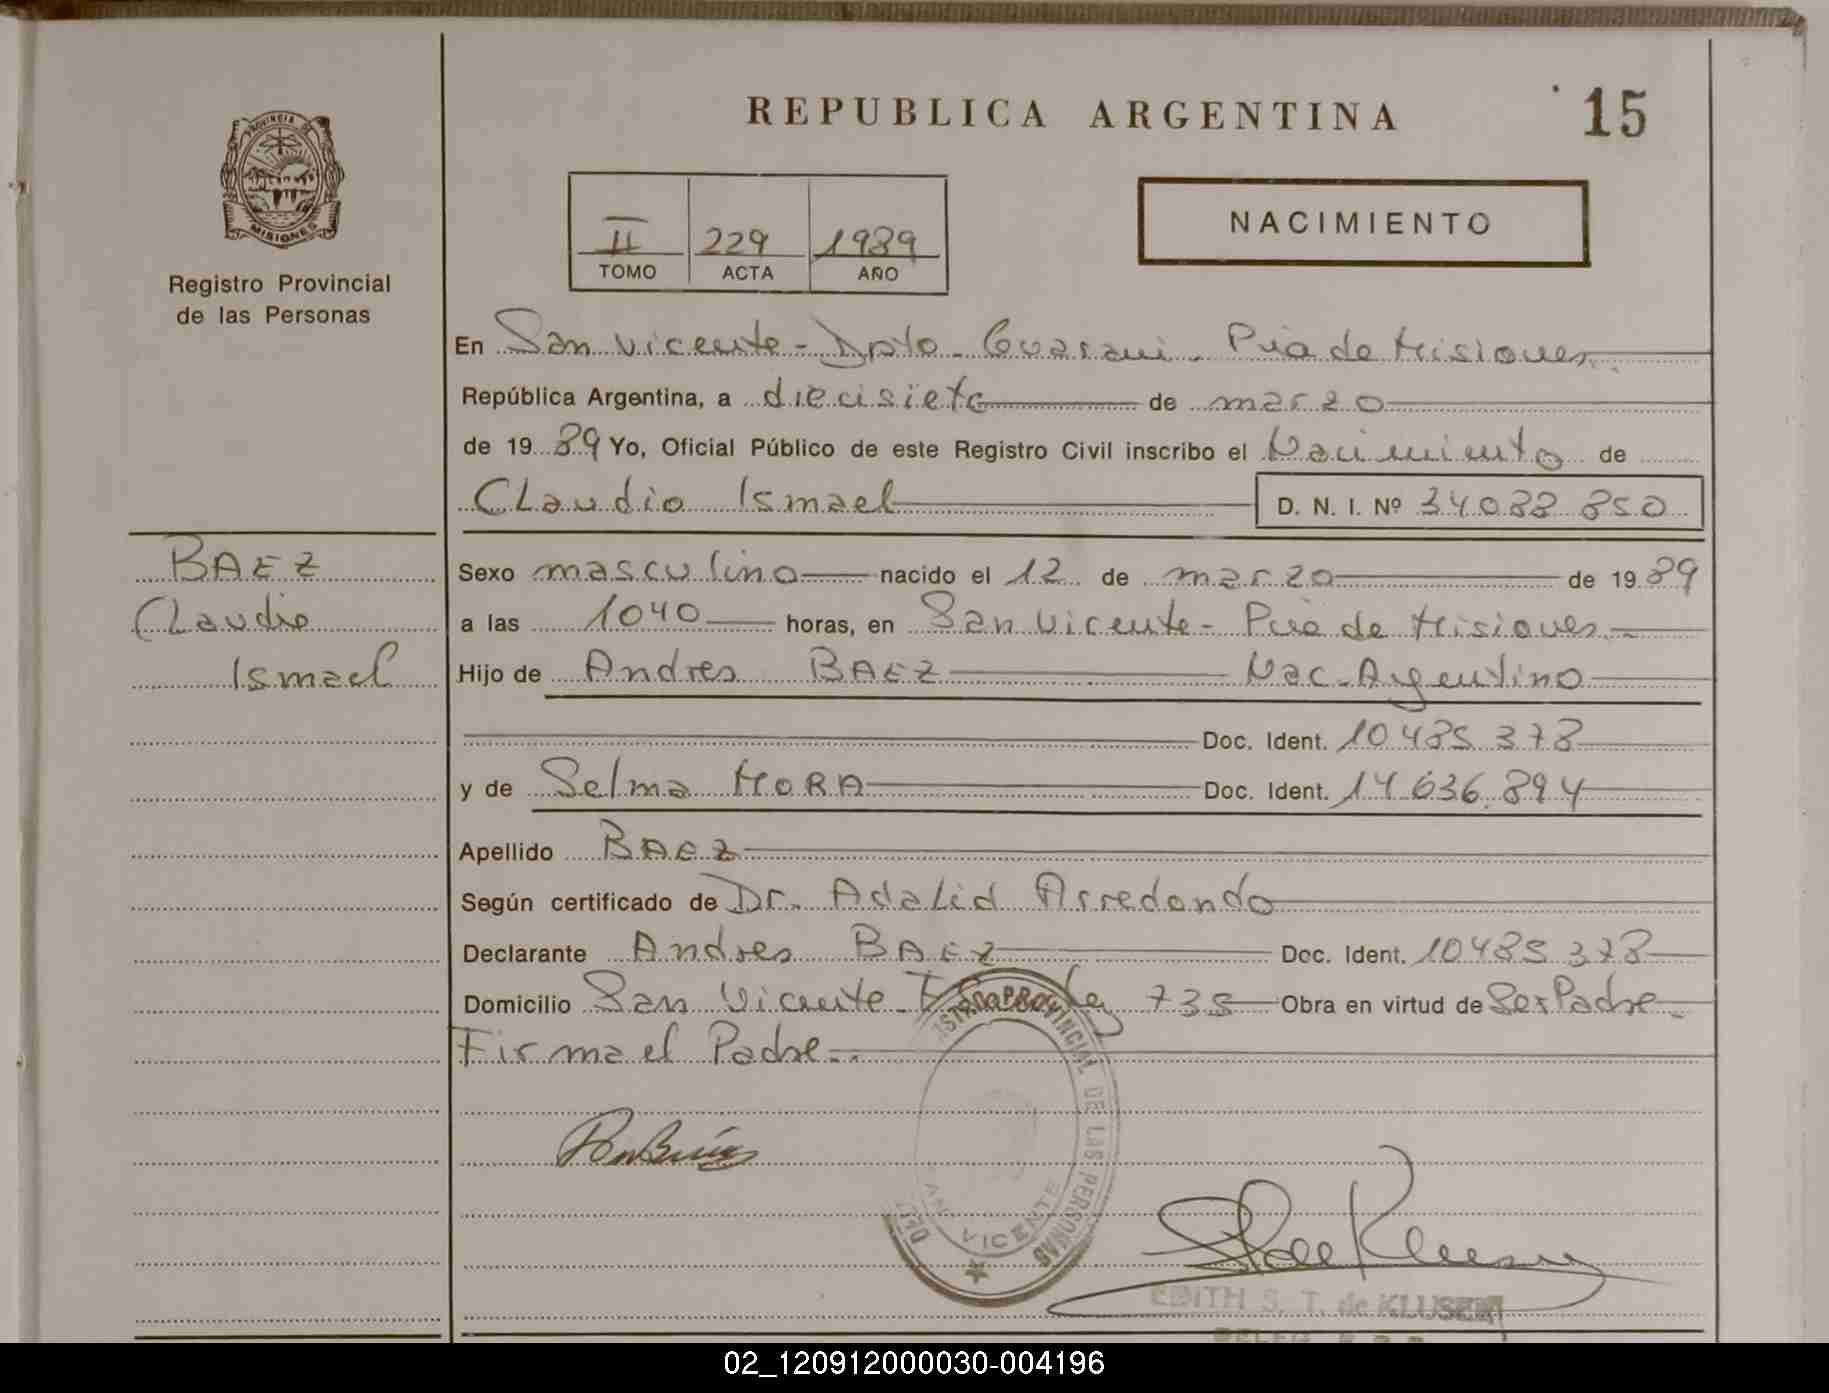 REPUBLICA ARGENTINA
15
PROVINCIA DE
MISIONES
Registro Provincial
de las Personas
II 229 1989
TOMO ACTA AÑO
NACIMIENTO
En San Vicente - Dpto - Guarani - Pcia de Misiones
República Argentina, a diecisiete de marzo
de 19 89 Yo, Oficial Público de este Registro Civil inscribo el Nacimiento de
Claudio Ismael D. N. I. Nº 34.088 850
BAEZ
Claudio
Ismael
Sexo masculino nacido el 12 de marzo de 19 89
a las 1040 horas, en San Vicente - Pcia de Misiones
Hijo de Andres BAEZ Nac. Argentino
Doc. Ident. 10.485 378
y de Selma MORA Doc. Ident. 14.636.894
Apellido BAEZ
Según certificado de Dr. Adalid Arredondo
Declarante Andres BAEZ Doc. Ident. 10.485 378
Domicilio San Vicente 735 Obra en virtud de Ser Padre
Firma el Padre
PROVINCIAL DE LAS PERSONAS
VICENTE
EDITH S. T. de KLUSEN
02_120912000030-004196